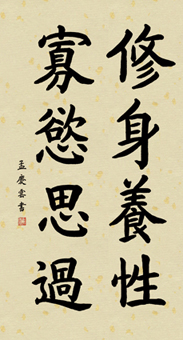 修身養性
寡慾思過
孟慶雲書